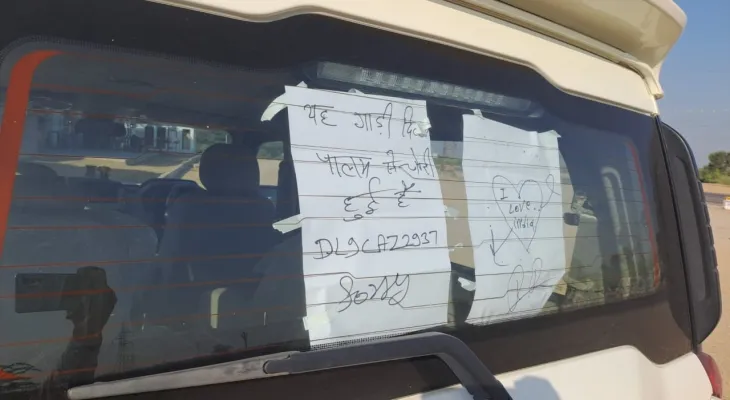 यह गाड़ी दिल्ली
पालम से चोरी
हुई है
DL9CAZ2937
Sorry
I
LOVE
India